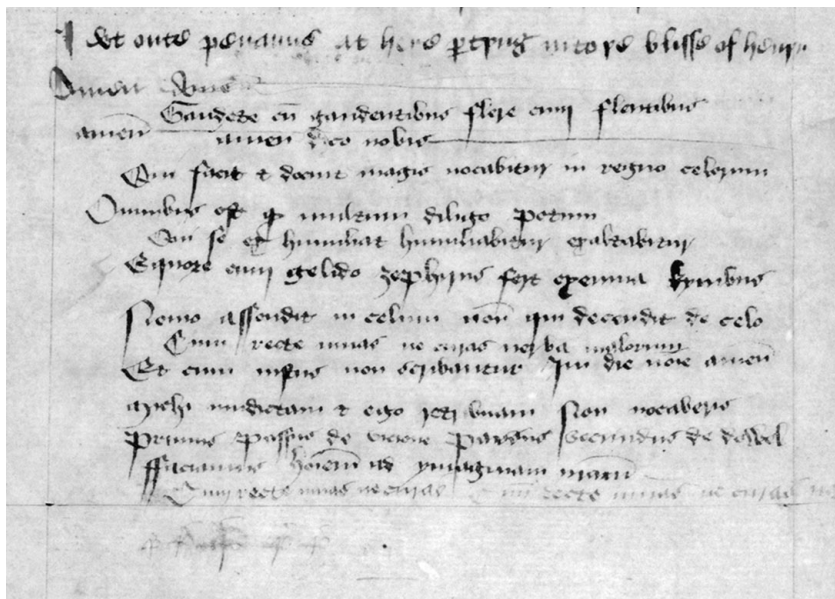 wt oute penauns at here ptyng in to þe blisse of heuen
Amen Amen
Gaudete cu gaudentibus flere cum flentibus
amen amen deo nobis
Qui facit & docuit magis vocabitur in regno celorum
Omnibus est q multum diligo potum
Qui se humiliat humiliabitur exaltabitur
Equore cum gelido zephyrus fert exennia kymbus
Nemo assendit in celum non qui decendit de celo
Cum recte viuas ne cures verba malorum
Et cum non scribantur In die noie amen
michi vindictam & ego non vocaberis
Primus Passus de visione secundus de dowel
ffaciamus hoiem ad ymaginam nram
Cum recte viuas ne cures Cum recte viuas ne cures